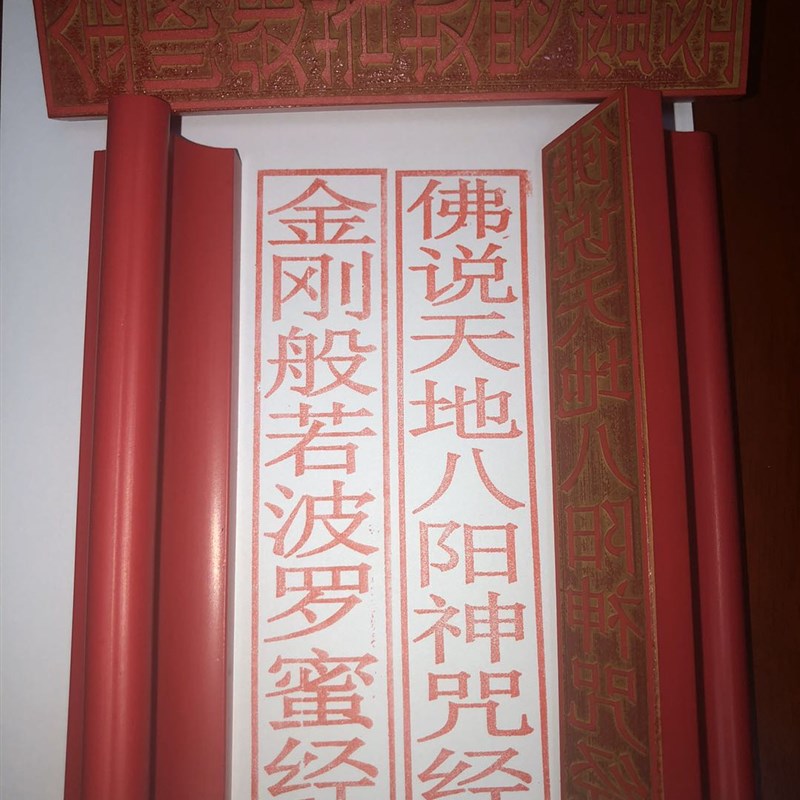 佛说天地八阳神咒经
金刚般若波罗蜜经